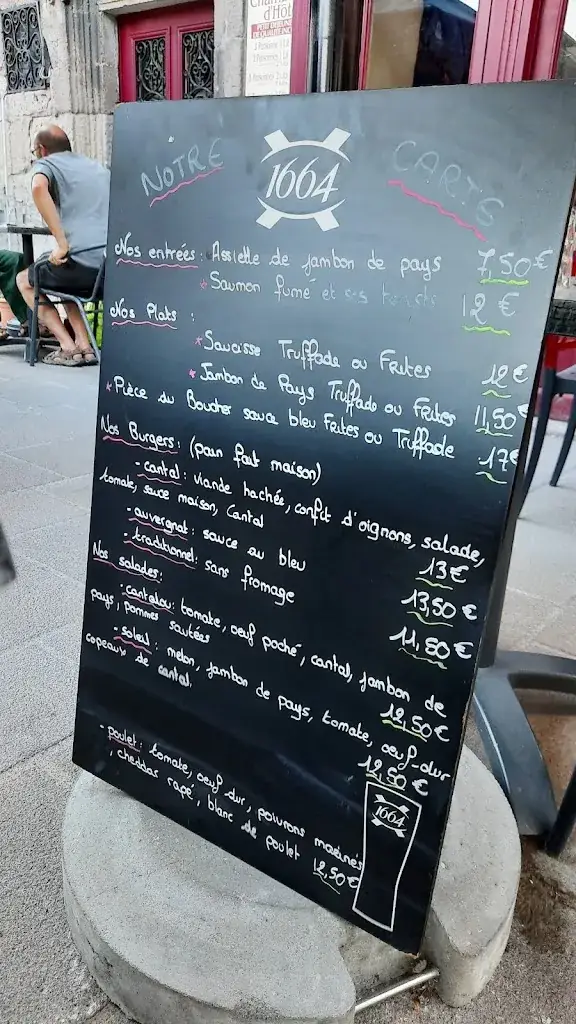 d'Hôt
PETIT DEJEUN
DE QUALITÉ INCL
NÔTRE 1664 CARTS
Nos entrées: Assiette de jambon de pays 7,50€
* Saumon fumé et ses toasts 12€
Nos Plats :
* Saucisse Truffade ou Frites 12€
* Jambon de Pays Truffade ou Frites 11,50€
* Pièce du Boucher sauce bleu Frites ou Truffade 17€
Nos Burgers: (pain fait maison)
- cantal: viande hachée, confit d'oignons, salade,
tomate, sauce maison, Cantal 13€
- auvergnat: sauce au bleu 13,50€
- traditionnel: sans fromage 11,50€
Nos salades:
- cantalou: tomate, oeuf poché, cantal, jambon de
pays, pommes sautées 12,50€
- soleil: melon, jambon de pays, tomate, oeuf-dur
copeaux de cantal. 12,50€
- poulet: tomate, oeuf dur, poivrons marinés
, cheddar rapé, blanc de poulet 12,50€
1664